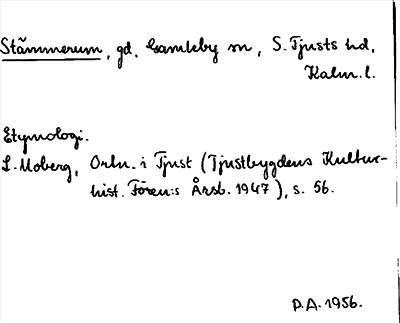 Stämmerum, gd, Gamleby sn, S. Tjusts hd,
Kalm. l.
Etymologi.
L. Moberg, Ortn. i Tjust (Tjustbygdens Kultur-
hist. Fören:s Årsb. 1947), s. 56.
P.A. 1956.